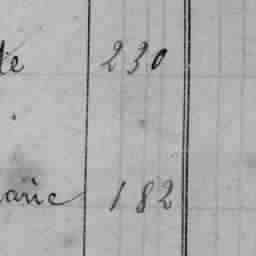 te 230
arie 182